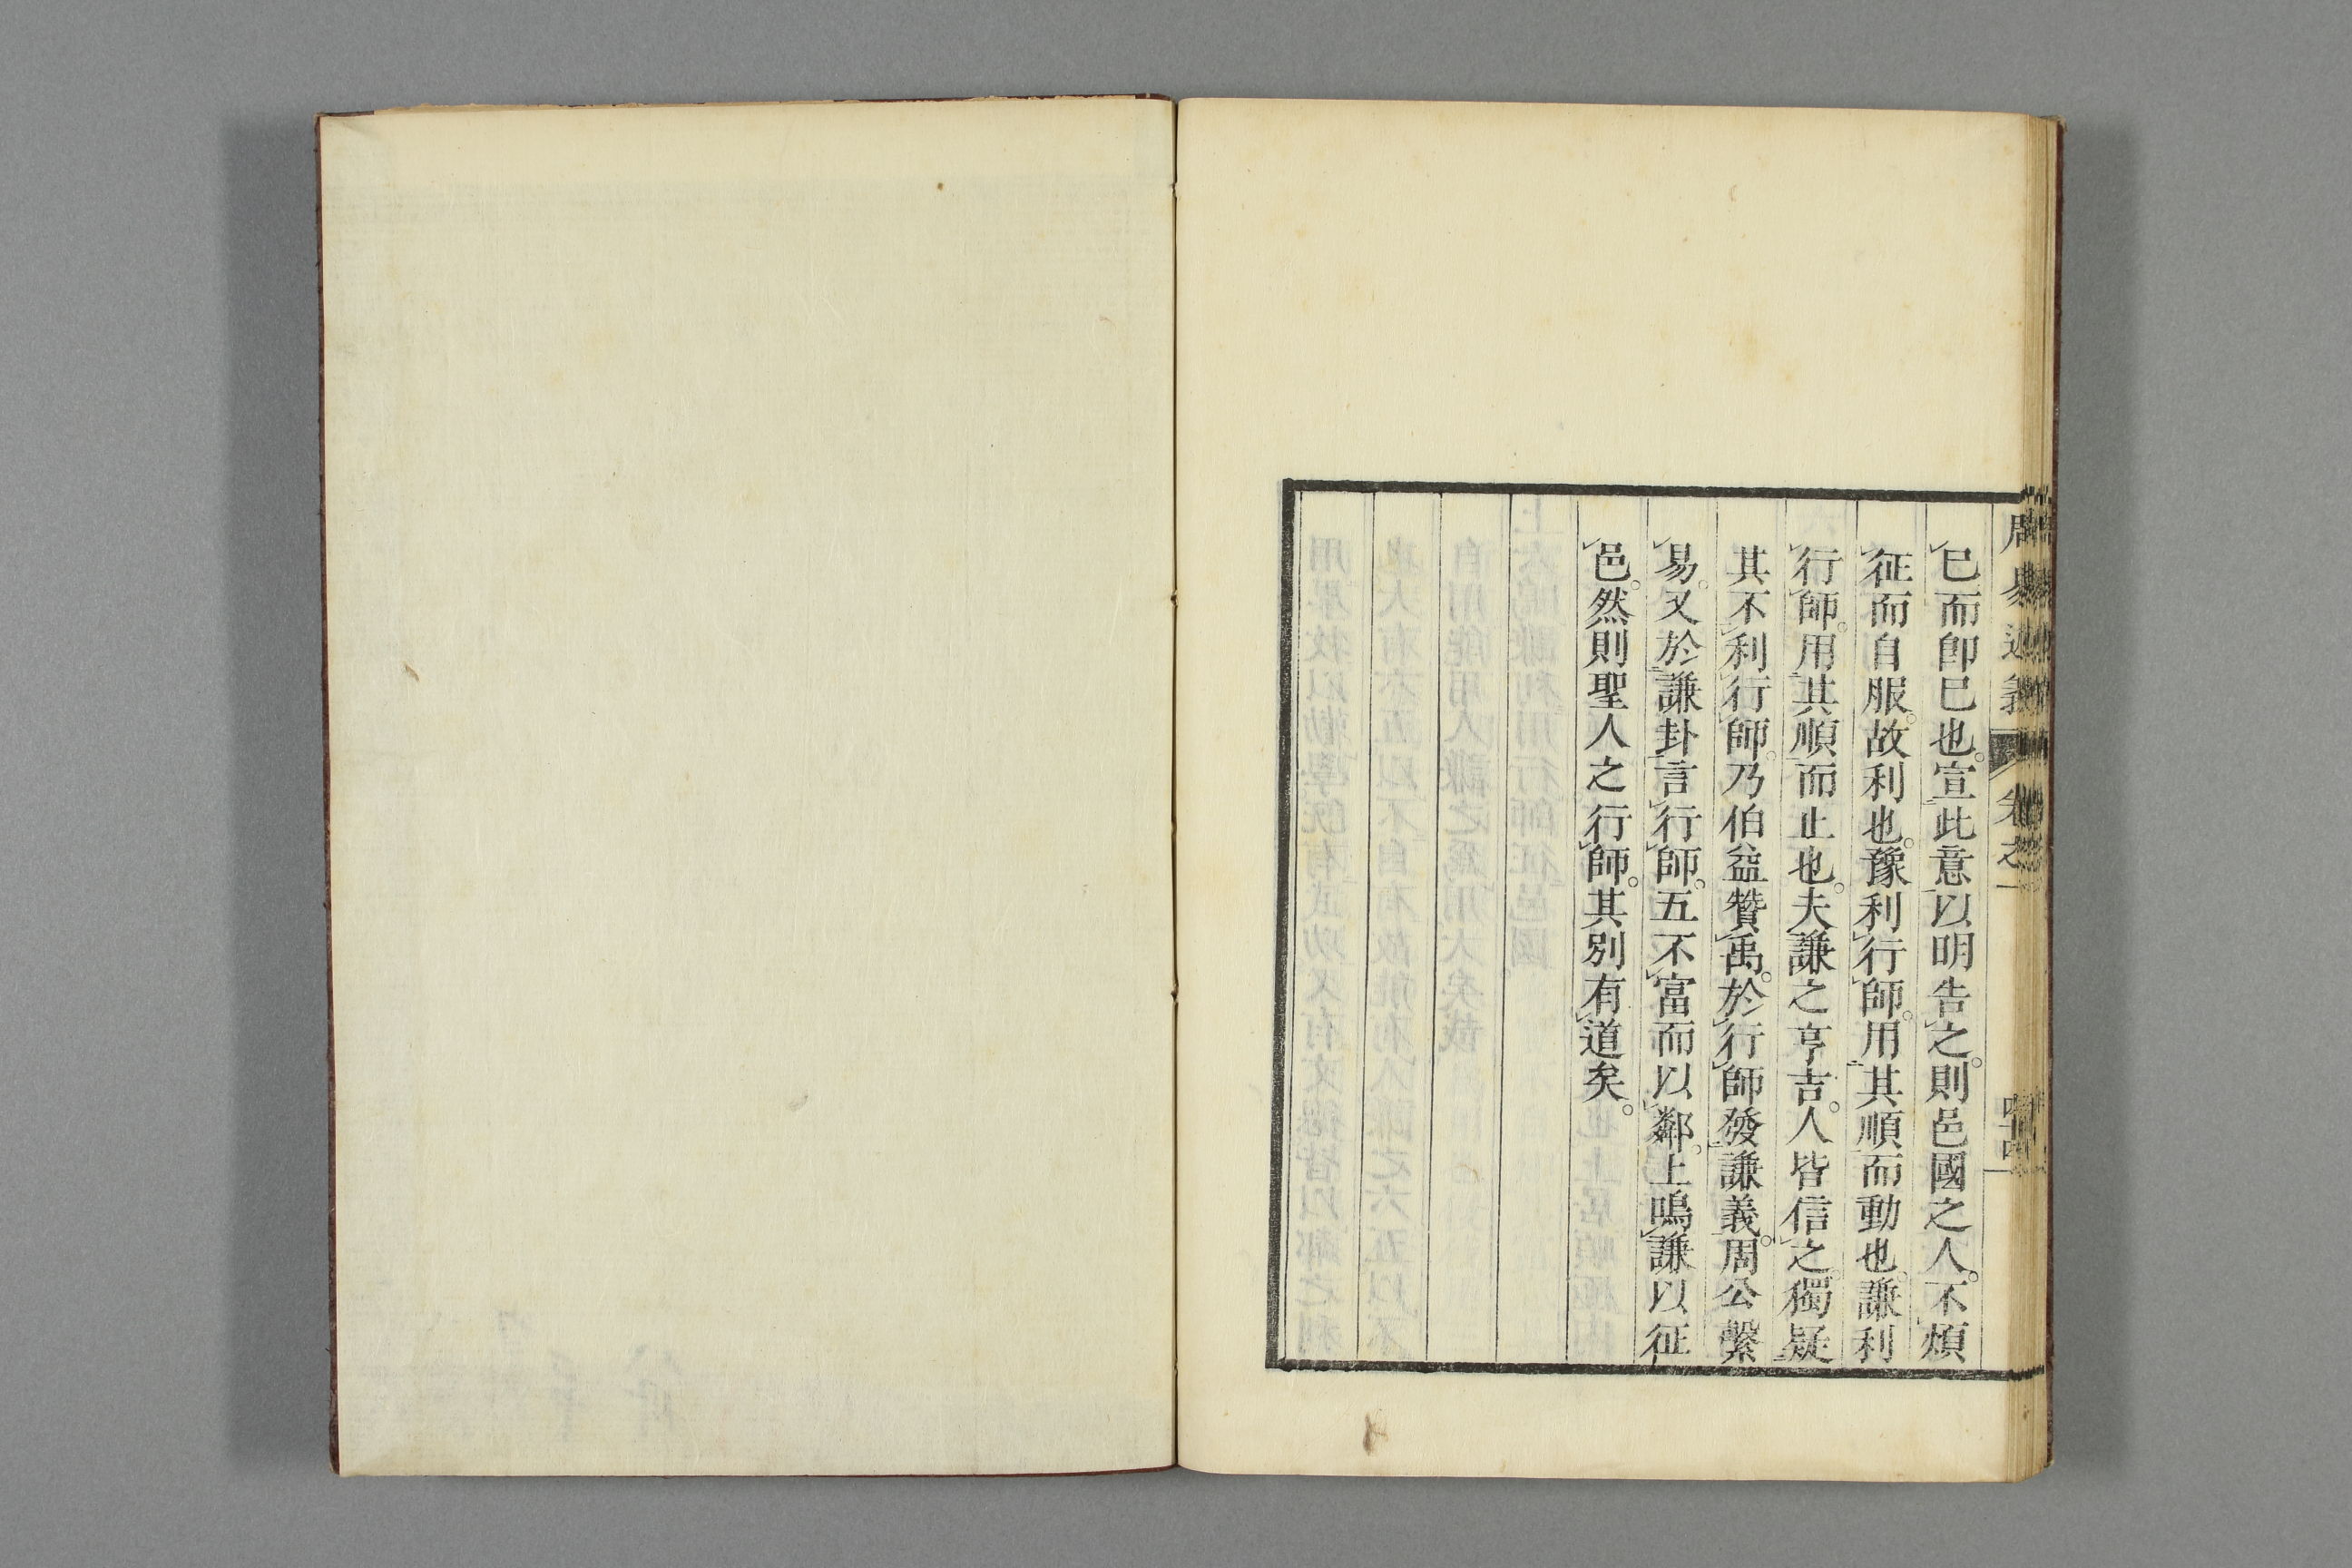 巳而卽巳也。宣此意以明告之。則邑國之人。不煩
征而自服。故利也。豫利行師。用其順而動也。謙利
行師。用其順而止也。夫謙之亨吉。人皆信之獨疑
其不利行師。乃伯益贊禹。於行師發謙義。周公繫
易。又於謙卦言行師。五不富而以鄰。上鳴謙以征
邑。然則聖人之行師。其別有道矣。